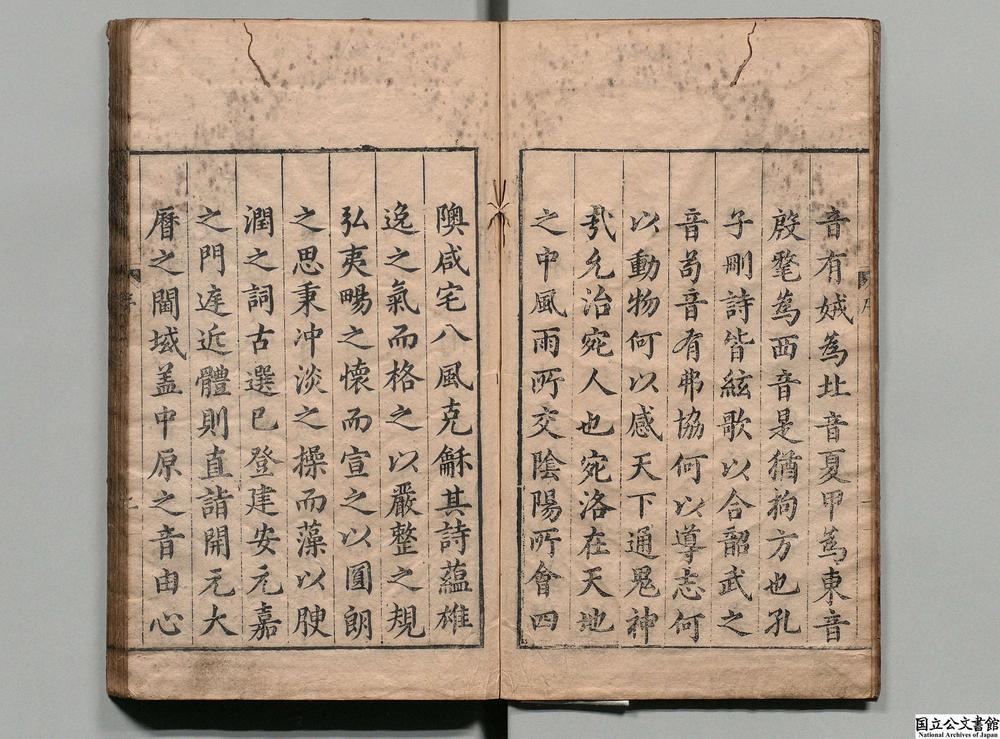 音有娀為北音夏甲為東音
殷氂為西音是猶拘方也孔
子刪詩皆絃歌以合韶武之
音苟音有弗協何以導志何
以動物何以感天下通鬼神
㢤允治宛人也宛洛在天地
之中風雨所交陰陽所會四
隩咸宅八風克龢其詩蘊雄
逸之氣而格之以嚴整之規
弘夷暢之懷而宣之以圓朗
之思秉冲淡之操而藻以腴
潤之詞古選已登建安元嘉
之門庭近體則直詣開元大
曆之閫域盖中原之音由心
国立公文書館
National Archives of Japan